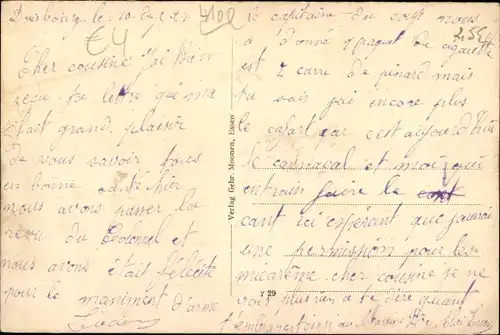 Duisbourg le 10
4100
€4
Cher cousine j'ai bien
reçu ta lettre qui ma
était grand plaisir
de vous savoir tous
en bonne santé hier
nous avons passer la
revu du Colonnel et
nous avons était félécité
pour le maniment d'arme
Lucien
Verlag Gebr. Moonen, Essen
Y 29
le capitaine du coup nous
a donné 1 paquet de cigarette
est 2 carre de pinard mais
tu sais j'ai encore plus
le cafart car cest aujourd'hui
le carnaval et moi qui
entrain faire le
cant ici espérant que j'aurai
une permission pour les
micarême. cher cousine je ne
voit plus rien a te dire quant
t'embrassant